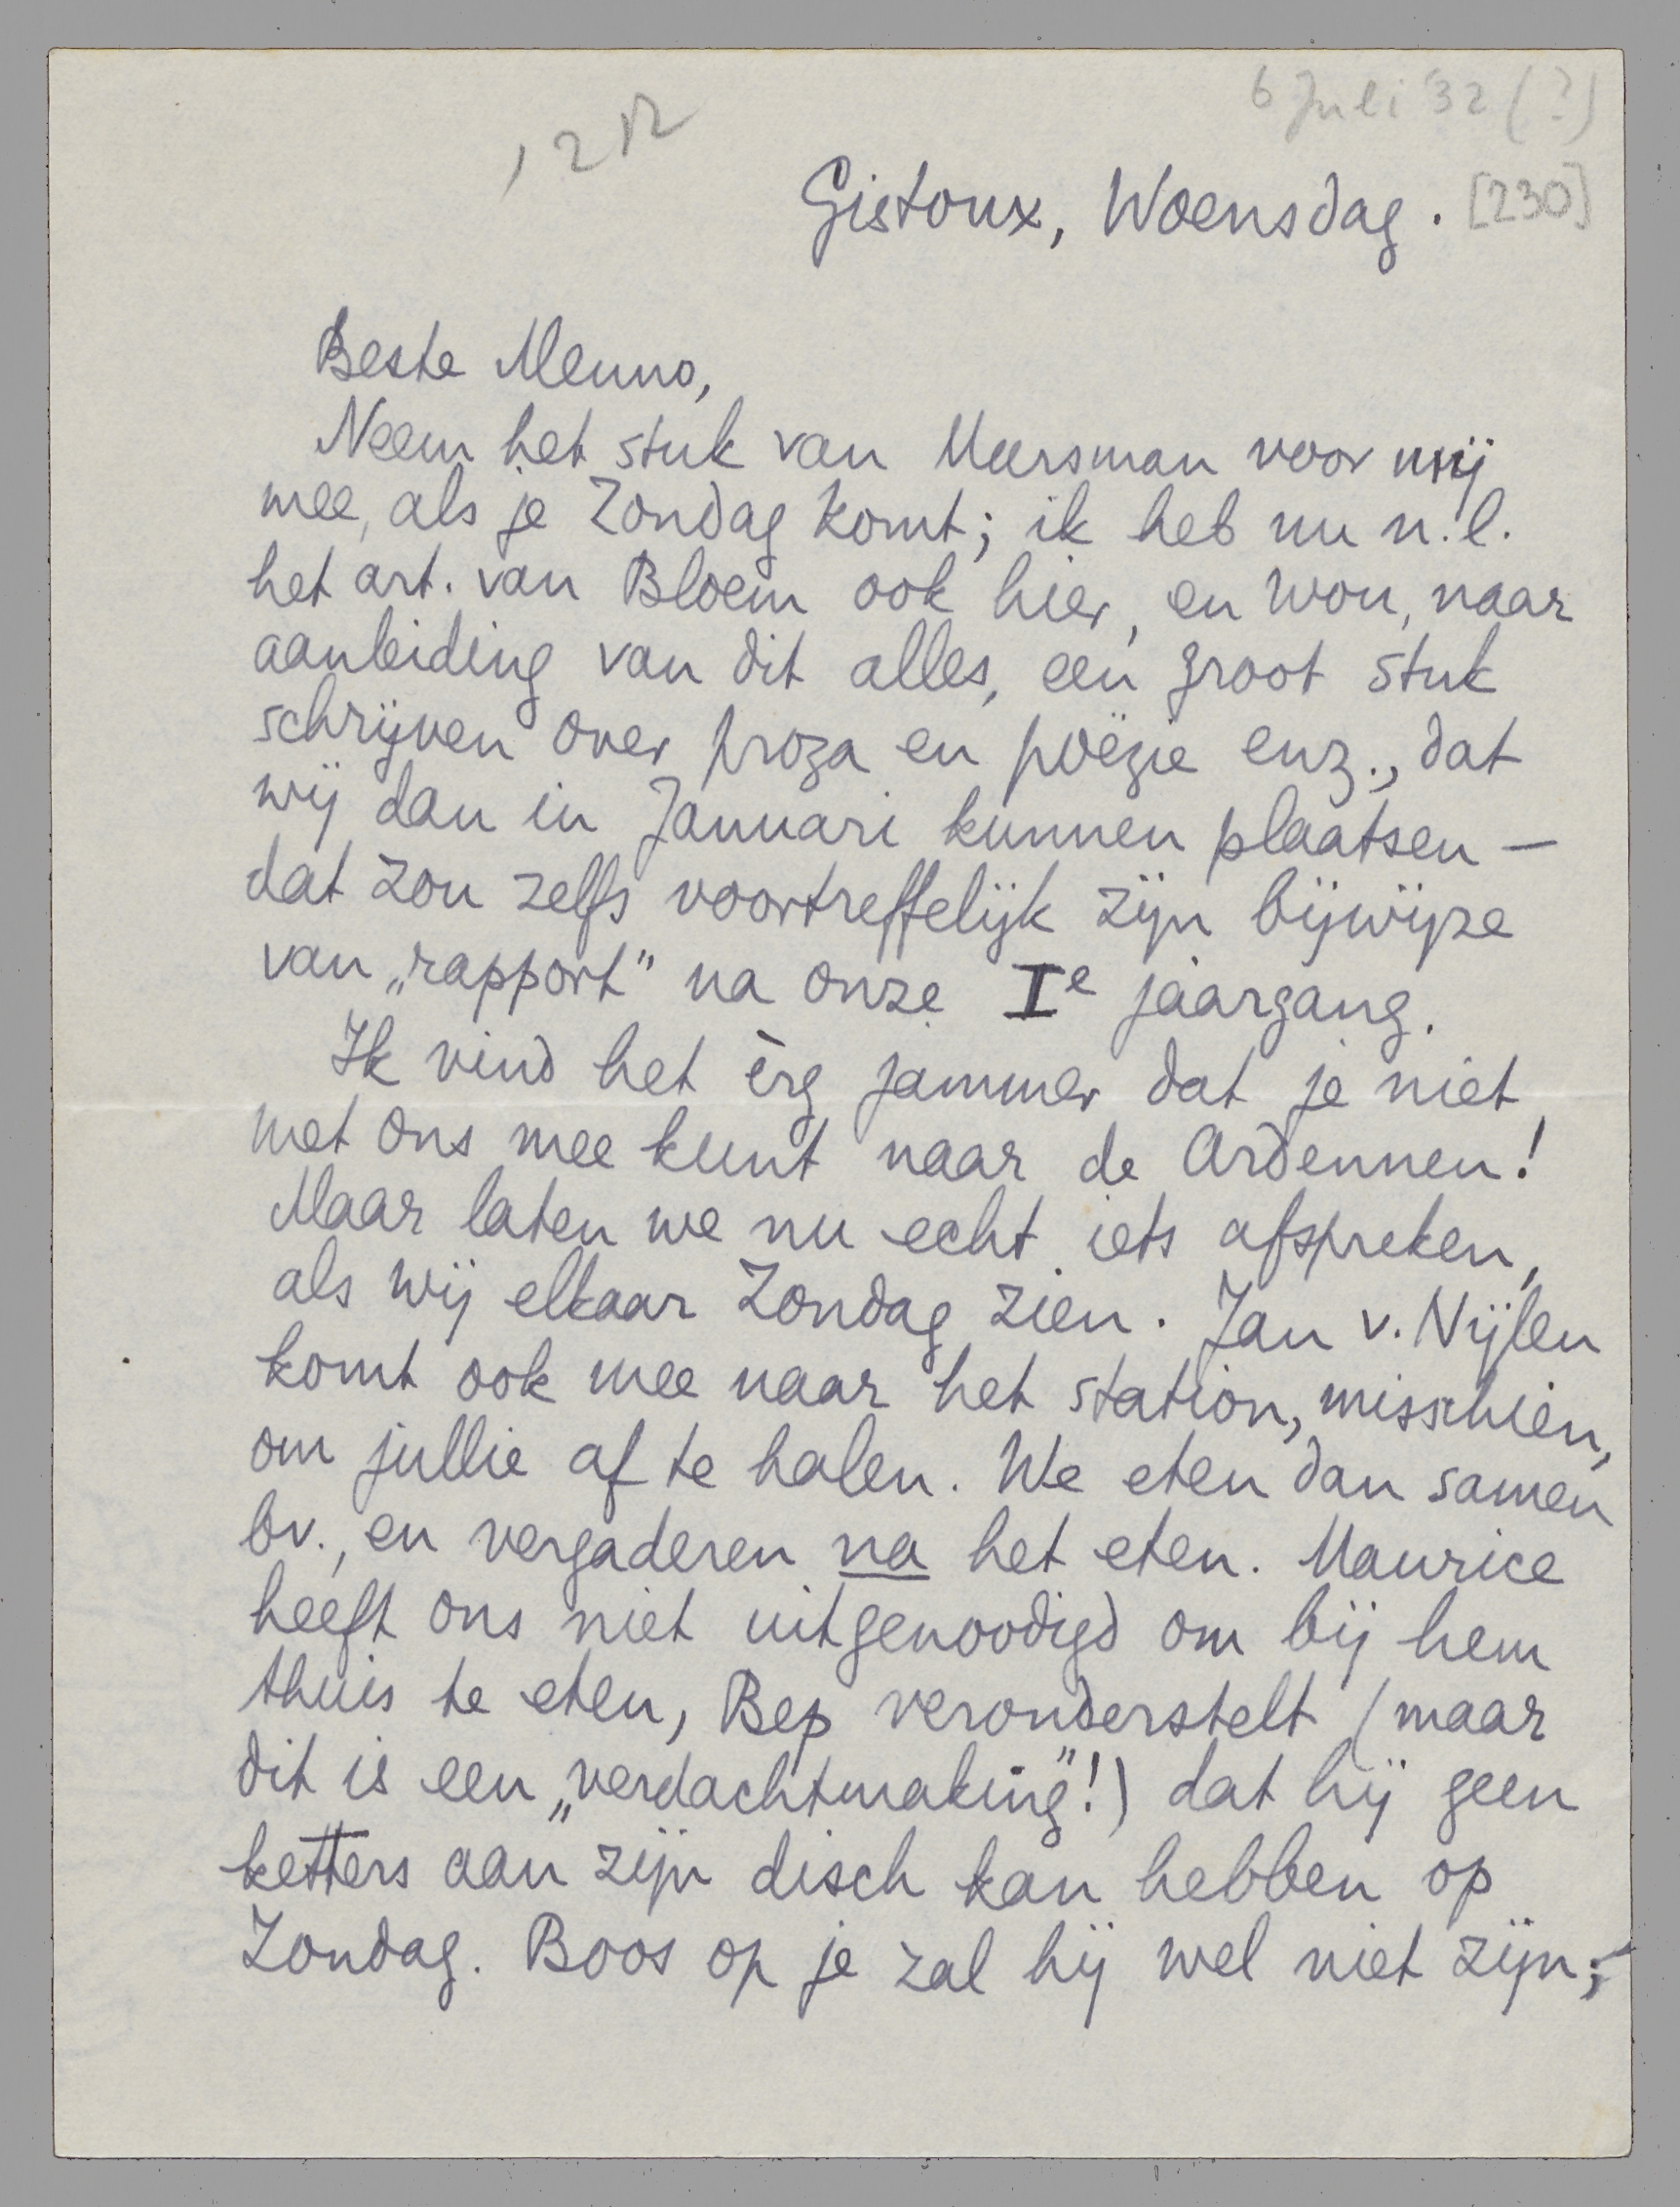 6 Juli '32 (?)
Gistoux, Woensdag. [230]
Beste Menno,
Neem het stuk van Marsman voor mij
mee, als je Zondag komt; ik heb nu n.l.
het art. van Bloem ook hier, en wou, naar
aanleiding van dit alles, een groot stuk
schrijven over proza en poëzie enz., dat
wij dan in Januari kunnen plaatsen —
dat zou zelfs voortreffelijk zijn bijwijze
van „rapport” na onze Ie jaargang.
Ik vind het èrg jammer dat je niet
met ons mee kunt naar de Ardennen!
Maar laten we nu echt iets afspreken,
als wij elkaar Zondag zien. Jan v. Nijlen
komt ook mee naar het station, misschien,
om jullie af te halen. We eten dan samen
bv., en vergaderen na het eten. Maurice
heeft ons niet uitgenoodigd om bij hem
thuis te eten, Bep veronderstelt (maar
dit is een „verdachtmaking”!) dat hij geen
ketters aan zijn disch kan hebben op
Zondag. Boos op je zal hij wel niet zijn;